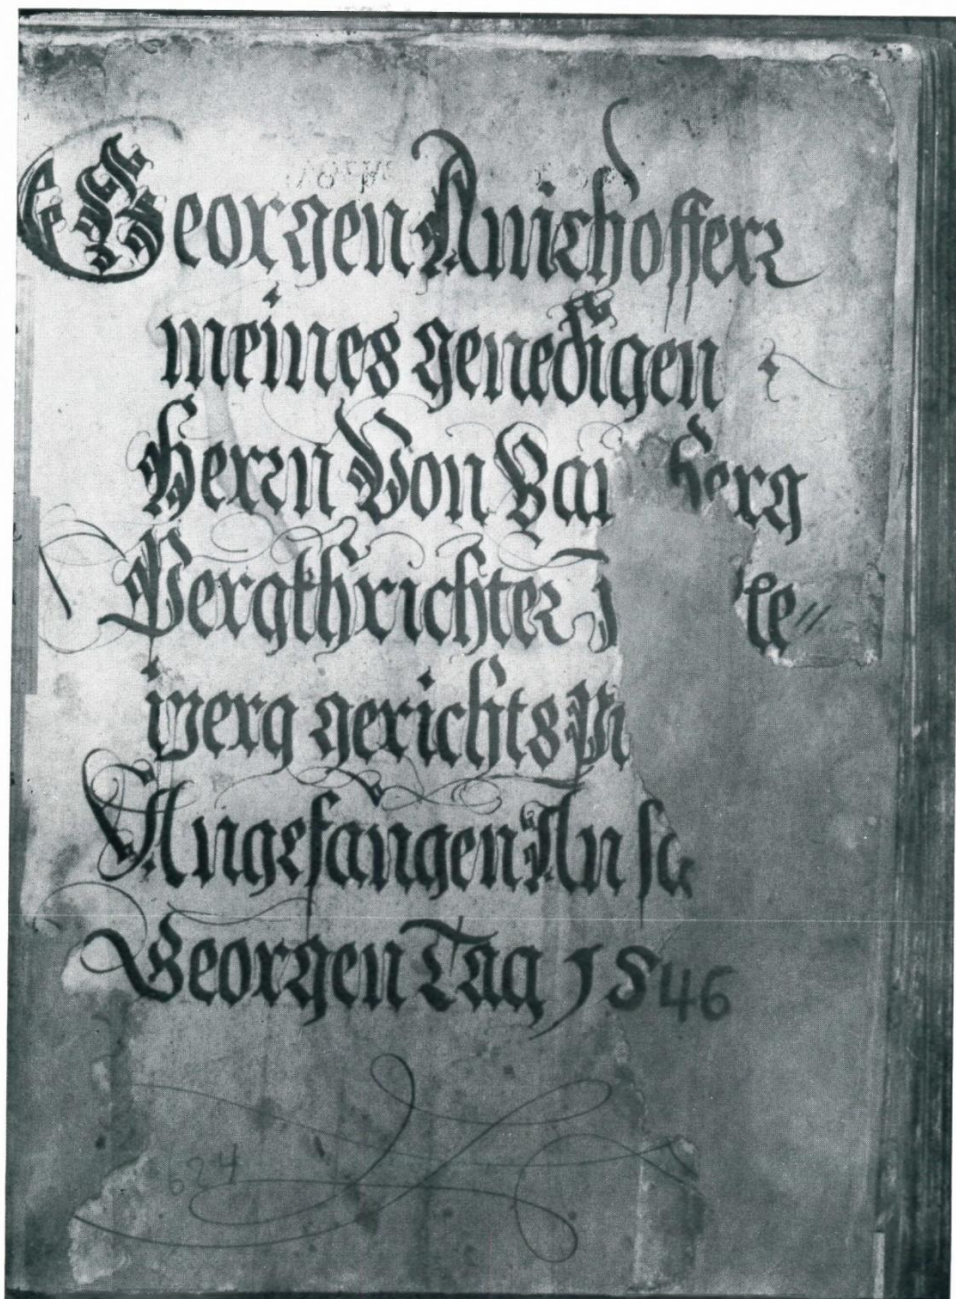 Georgen Amichofferr
meines genedigen
Herrn Von Bam berg
Pergkhrichter Ple//
iperg gerichts
Angefangen An
Georgen Tag 1546
624